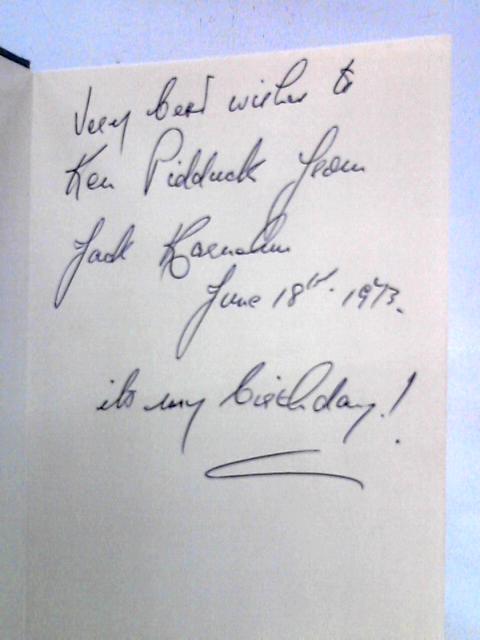 Very best wishes to
Ken Pidduck from
Jack Karnehm
June 18th. 1973.
its my birthday!